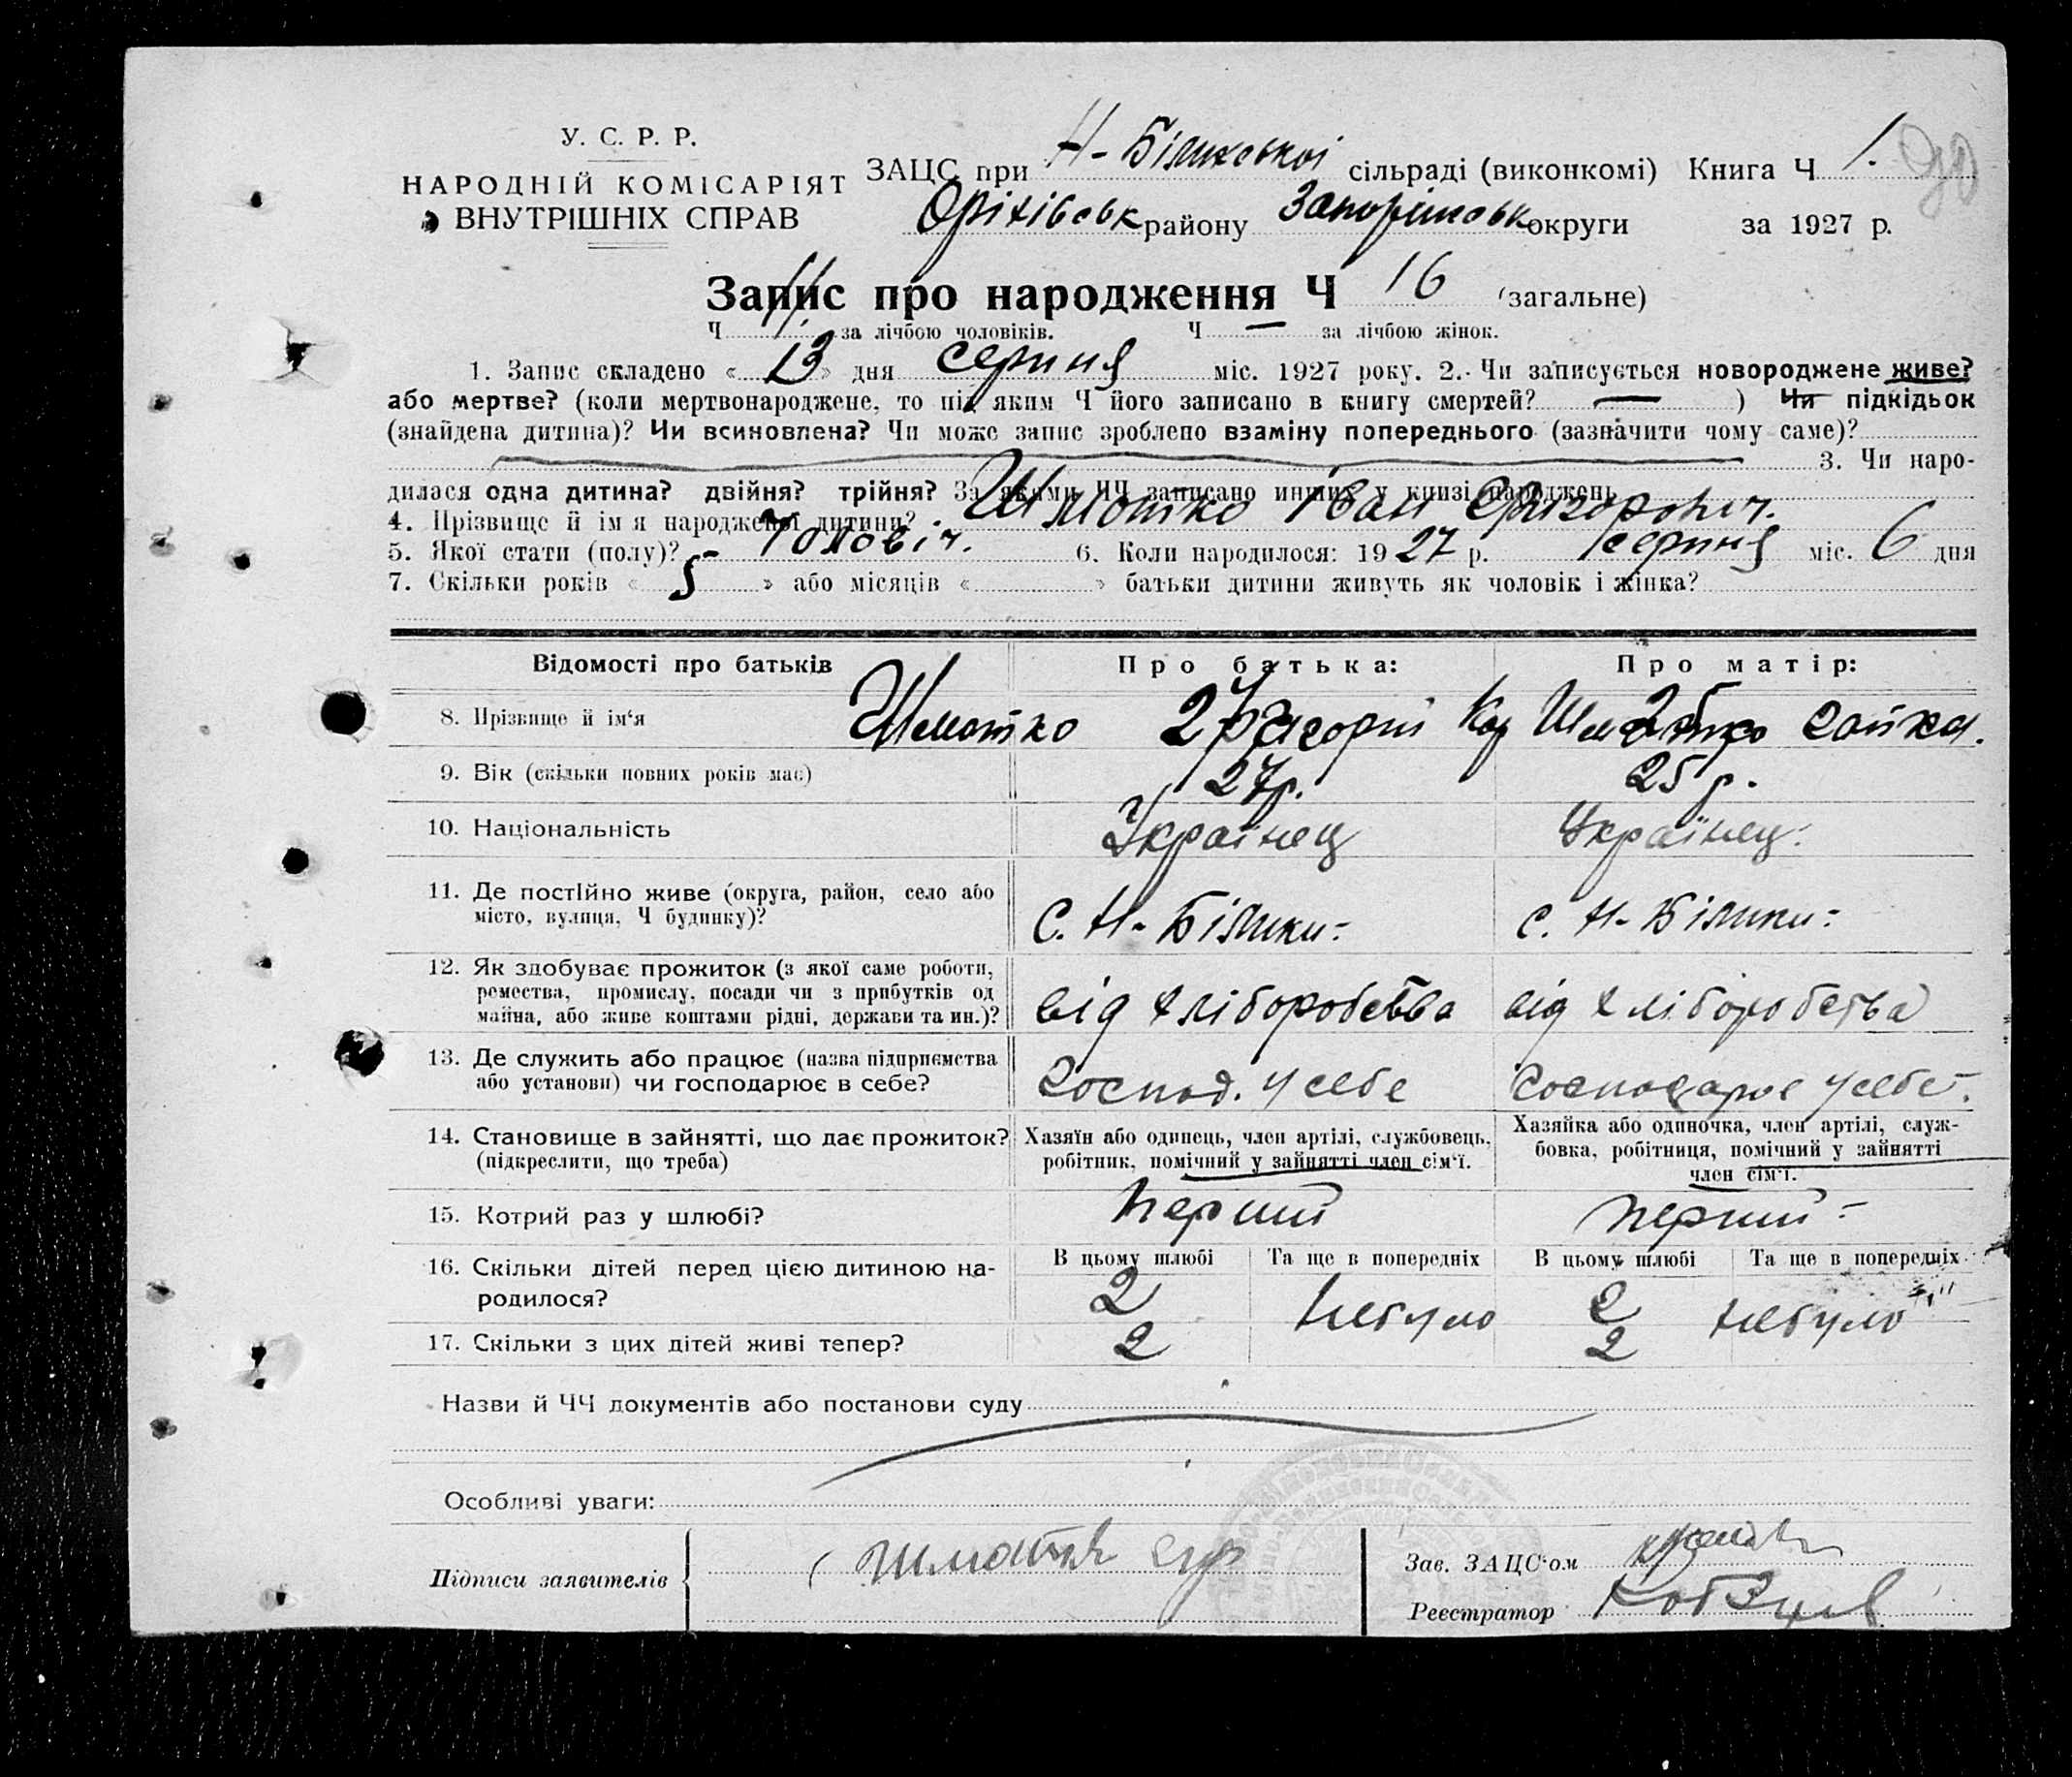 У. С. Р. Р.
НАРОДНІЙ КОМІСАРІЯТ
ВНУТРІШНІХ СПРАВ
ЗАЦС при Н-Біликської сільраді (виконкомі) Книга Ч 1.
Оріхівськ району Запоріжськ округи за 1927 р.
Запис про народження Ч 16 (загальне)
Ч 11 за лічбою чоловіків. Ч — за лічбою жінок.
1. Запис складено «13» дня серпня міс. 1927 року. 2. Чи записується новороджене живе?
або мертве? (коли мертвонароджене, то під яким Ч його записано в книгу смертей? — ) Чи підкідьок
(знайдена дитина)? Чи всиновлена? Чи може запис зроблено взаміну попереднього (зазначити чому саме)?
3. Чи наро-
дилася одна дитина? двійня? трійня? За якими ЧЧ записано инших у книзі народжень
4. Прізвище й ім я народженої дитини? Шмотко Іван Григорович.
5. Якої стати (полу)? - Чоловіч. 6. Коли народилося: 1927 р. серпня міс. 6 дня
7. Скільки років « 5 » або місяців « » батьки дитини живуть як чоловік і жінка?
Відомості про батьків Про батька: Про матір:
8. Прізвище й ім‘я Шмотко Григорій
9. Вік (скільки повних років має) 27р. 25 р.
10. Національність Українец Українец.
11. Де постійно живе (округа, район, село або
місто, вулиця, Ч будинку)? С. Н-Білики- С. Н-Білики-
12. Як здобуває прожиток (з якої саме роботи,
ремества, промислу, посади чи з прибутків од
майна, або живе коштами рідні, держави та ин.)? від хліборобства від хліборобства
13. Де служить або працює (назва підприємства
або установи) чи господарює в себе? Господ. у себе Господарює у себе-
14. Становище в зайнятті, що дає прожиток?
(підкреслити, що треба)
Хазяїн або одинець, член артілі, службовець,
робітник, помічний у зайнятті член сім‘ї.
Хазяйка або одиночка, член артілі, служ-
бовка, робітниця, помічний у зайнятті
член сім‘ї.
15. Котрий раз у шлюбі? Перший Перший-
16. Скільки дітей перед цією дитиною на-
родилося?
В цьому шлюбі Та ще в попередніх В цьому шлюбі Та ще в попередніх
2 небуло 2 небуло
17. Скільки з цих дітей живі тепер? 2 2
Назви й ЧЧ документів або постанови суду
Особливі уваги:
Підписи заявителів
Зав. ЗАЦС‘ом
Реєстратор